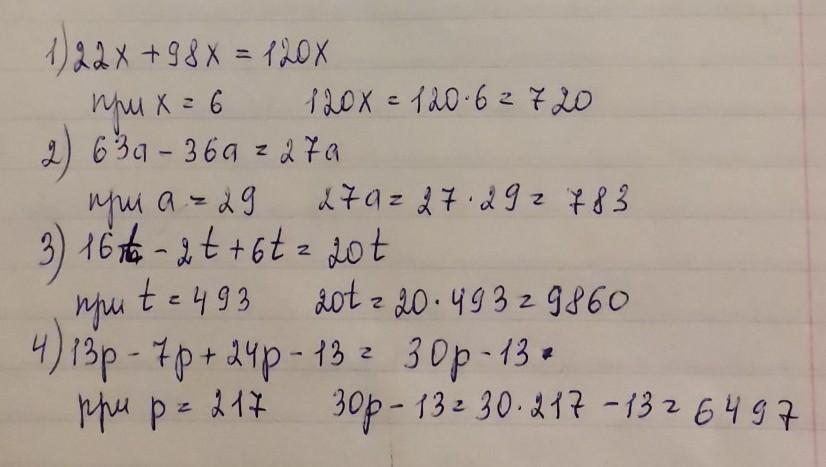 1) 22x + 98x = 120x
при x = 6 120x = 120·6 = 720
2) 63a - 36a = 27a
при a = 29 27a = 27·29 = 783
3) 16t - 2t + 6t = 20t
при t = 493 20t = 20·493 = 9860
4) 13p - 7p + 24p - 13 = 30p - 13
при p = 217 30p - 13 = 30·217 - 13 = 6497